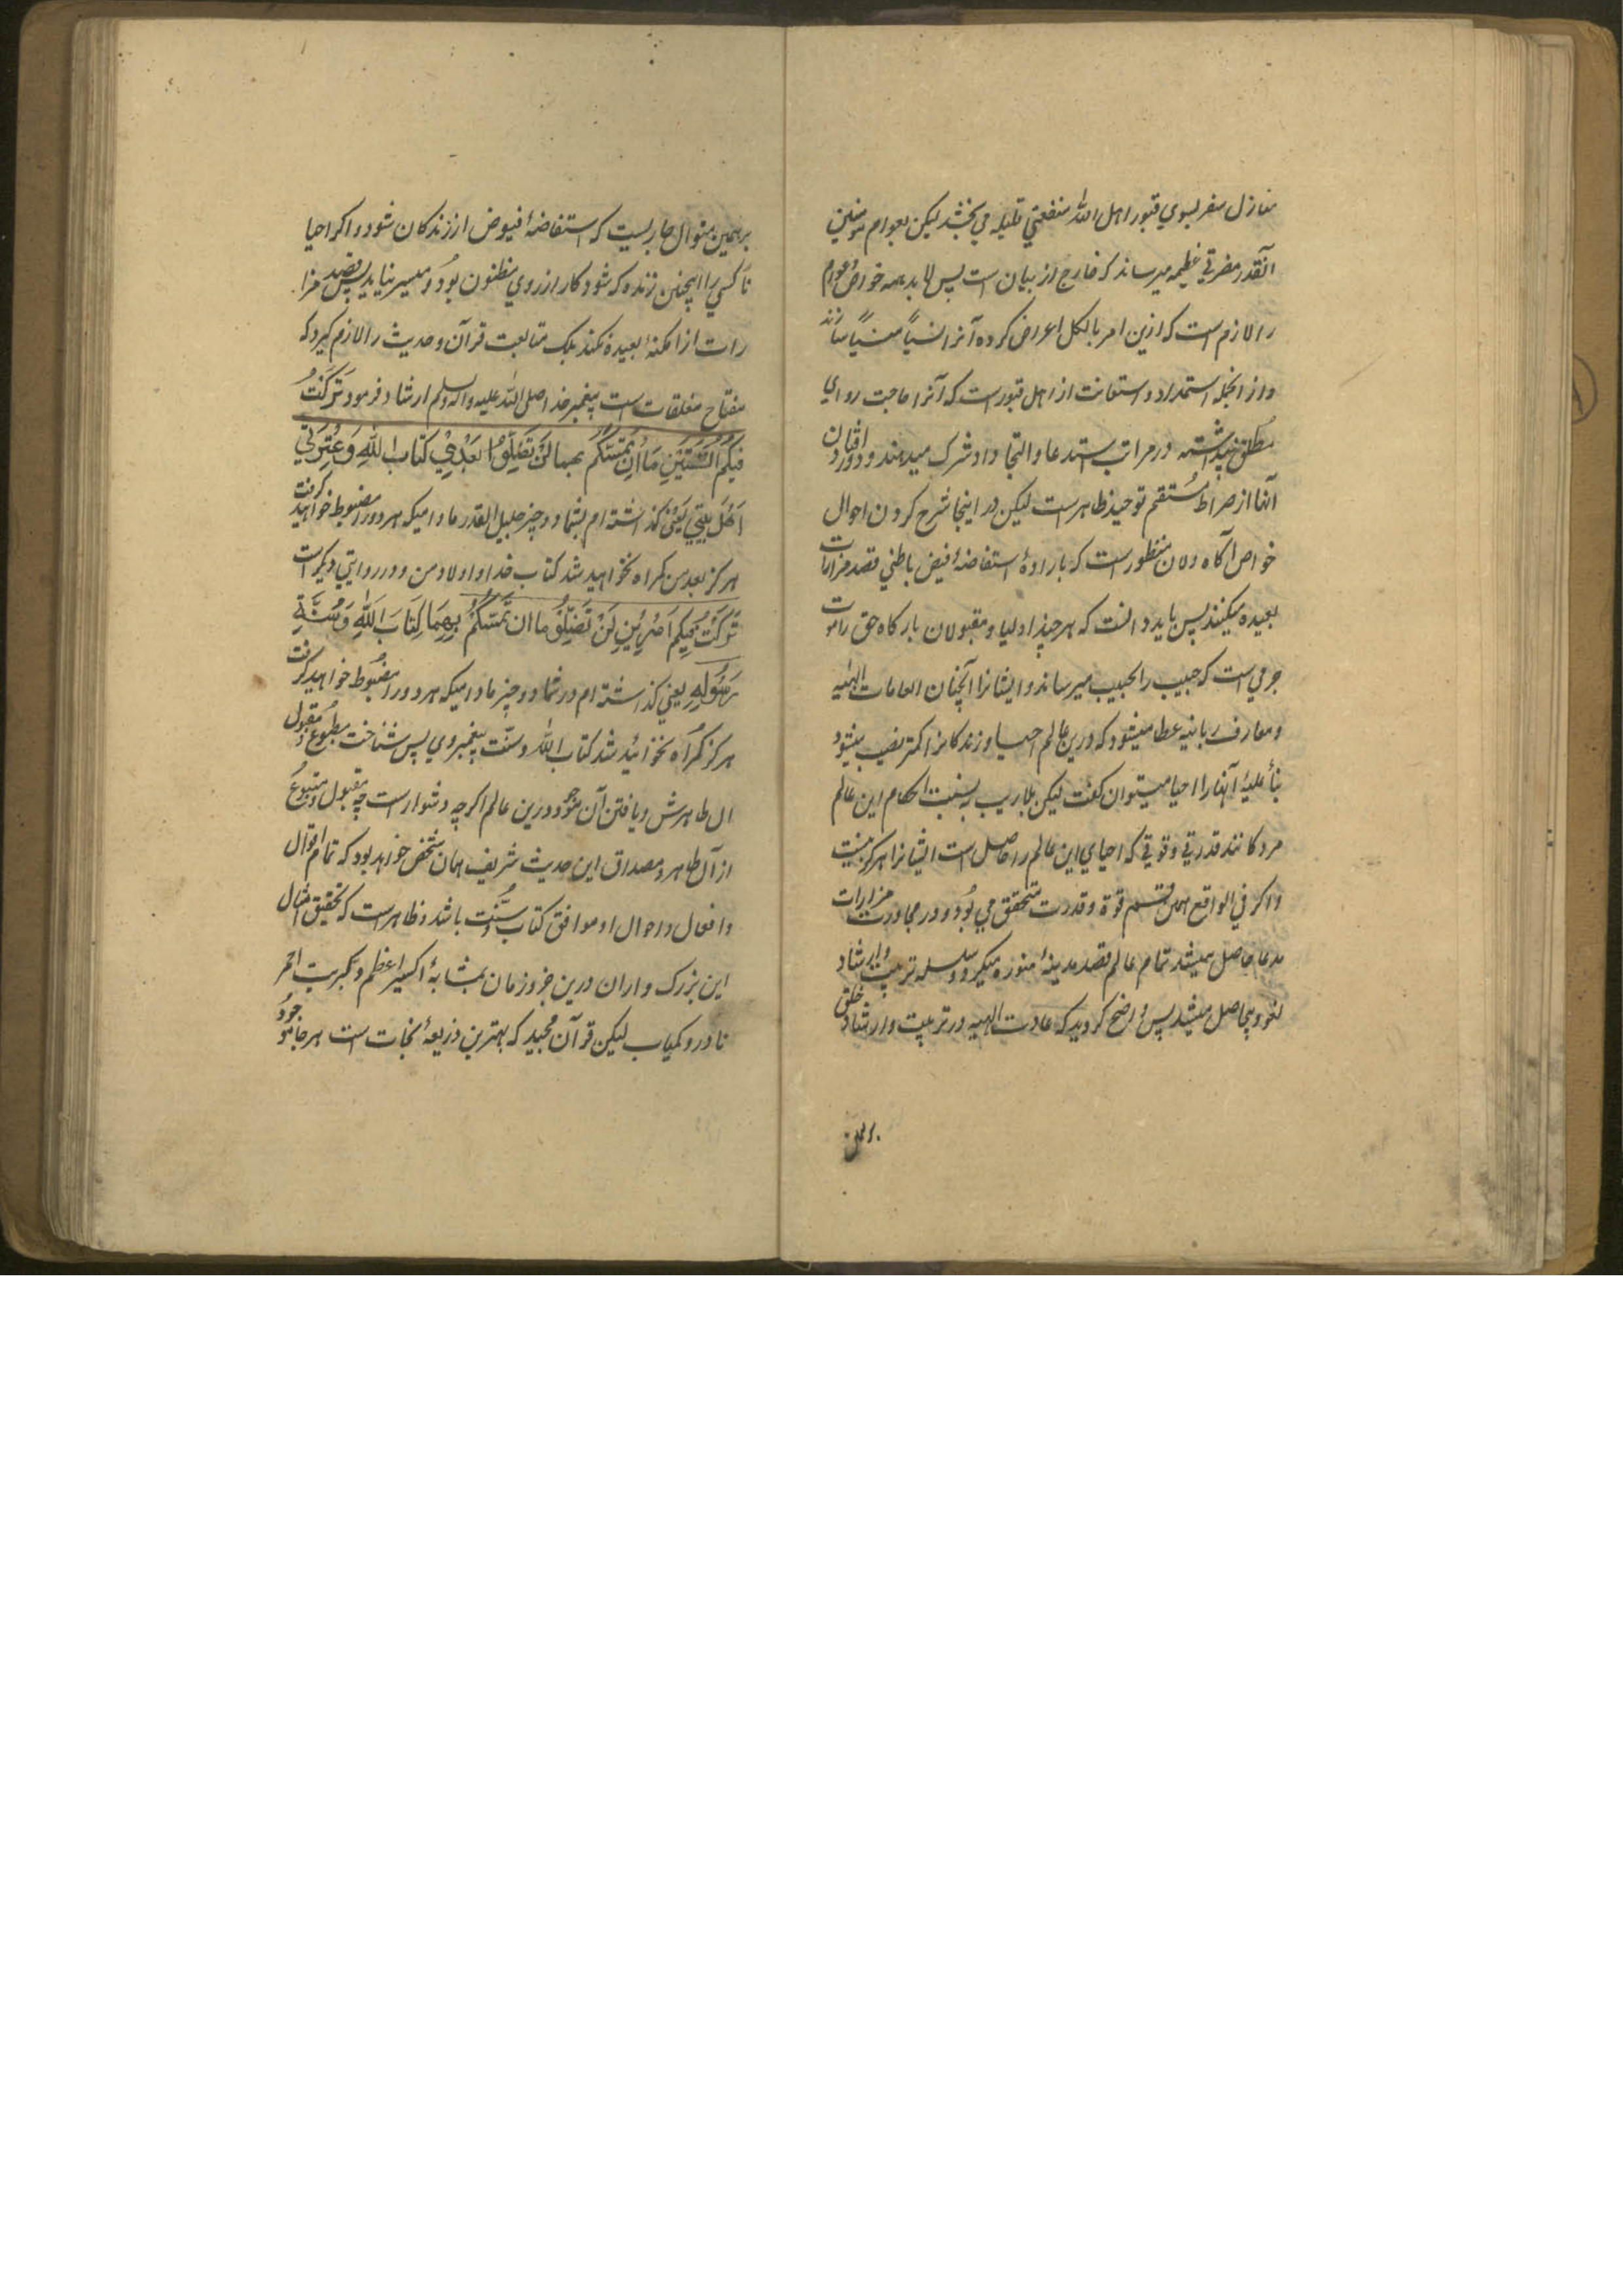 منازل سفر بسوي قبور اهل الله منفعتي قليله مي بخشد ليكن بعوام مومنين
آنقدر مضرتي عظيمه ميرساند كه خارج از بيان است پس لابد همه خواص و عوام
را لازم است كه ازين امر بالكل اعراض كرده آنرا نسياً منسياً سازند
و از انجمله استمداد و استعانت از اهل قبور است كه آنرا حاجت رواي
مطلق پنداشته در مراتب استدعا و التجا داد شرك ميدهند و دور افتادن
آنها از صراط مستقيم توحيد ظاهر است ليكن در اينجا شرح كردن احوال
خواص آگاه دلان منظور است كه باراده استفاضهٔ فيض باطني قصد مزارات
بعيده ميكنند پس بايد دانست كه هر چند اوليا و مقبولان بارگاه حق را موت
جسري است كه حبيب را بحبيب ميرساند و ايشانرا آنچنان انعامات الهيه
و معارف ربانيه عطا ميشود كه درين عالم احيا و زندگانرا كمتر نصيب ميشود
بناءً عليه آنها را احيا ميتوان گفت ليكن بلاريب به نسبت احكام اين عالم
مردگانند قدرتي و قوتي كه احياي اين عالم را حاصل است ايشانرا هرگز نيست
و اگر في الواقع همان قسم قوة و قدرت متحقق مي بود و در مجاورت مزارات
مدعا حاصل ميشد تمام عالم قصد مدينهٔ منوره ميكرد و سلسله تربيت و ارشاد
لغو و بيحاصل ميشد پس واضح گرديد كه عادت الهيه در تربيت و ارشاد خلق
برهمين
برهمين منوال جاريست كه استفاضهٔ فيوض از زندگان شود و اگر احيا
ناكسي را اينچنين زنده كه شود كار از روي مظنون بود و ميسر نيايد پس قصد مزا
رات از امكنهٔ بعيده نكند بلكه متابعت قرآن و حديث را لازم گيرد كه
مفتاح مغلقات است پيغمبر خدا صلى الله عليه و آله و سلم ارشاد فرمود تَرَكْتُ
فِيكُمُ الثَّقَلَيْنِ مَا اِن تَمَسَّكْتُم بهما لَنْ تَضِلُّوا بَعْدِي كتابَ اللهِ وَ عِتْرَتِي
اَهْلَ بَيْتِي يعني گذاشته ام بشما دو چيز جليل القدر ما داميكه هر دو را مضبوط خواهيد گرفت
هرگز بعد من گمراه نخواهيد شد كتاب خدا و اولاد من و در روايتي ديگر است
تَرَكْتُ فِيكُم اَمْرَيْنِ لَنْ تَضِلُّوا ما ان تَمَسَّكْتُمْ بِهِمَا كِتَابَ اللهِ وَ سُنَّةِ
رَسُولِهِ يعني گذاشته ام در شما دو چيز ما داميكه هر دو را مضبوط خواهيد گرفت
هرگز گمراه نخواهيد شد كتاب الله و سنّت پيغمبر وي پس شناخت مطبوع و مقبول
آل طاهرش و يافتن آن موجود درين عالم اگر چه دشوار است چه مقبول و متبوع
از آل طاهر و مصداق اين حديث شريف همان شخص خواهد بود كه تمام اقوال
و افعال و احوال او موافق كتاب و سنّت باشد و ظاهر است كه تحقيق امثال
اين بزرگواران درين جزو زمان بمثابهٔ اكسير اعظم و كبريت احمر
نادر و كمياب ليكن قرآن مجيد كه بهترين ذريعهٔ نجات است هر جا موجود